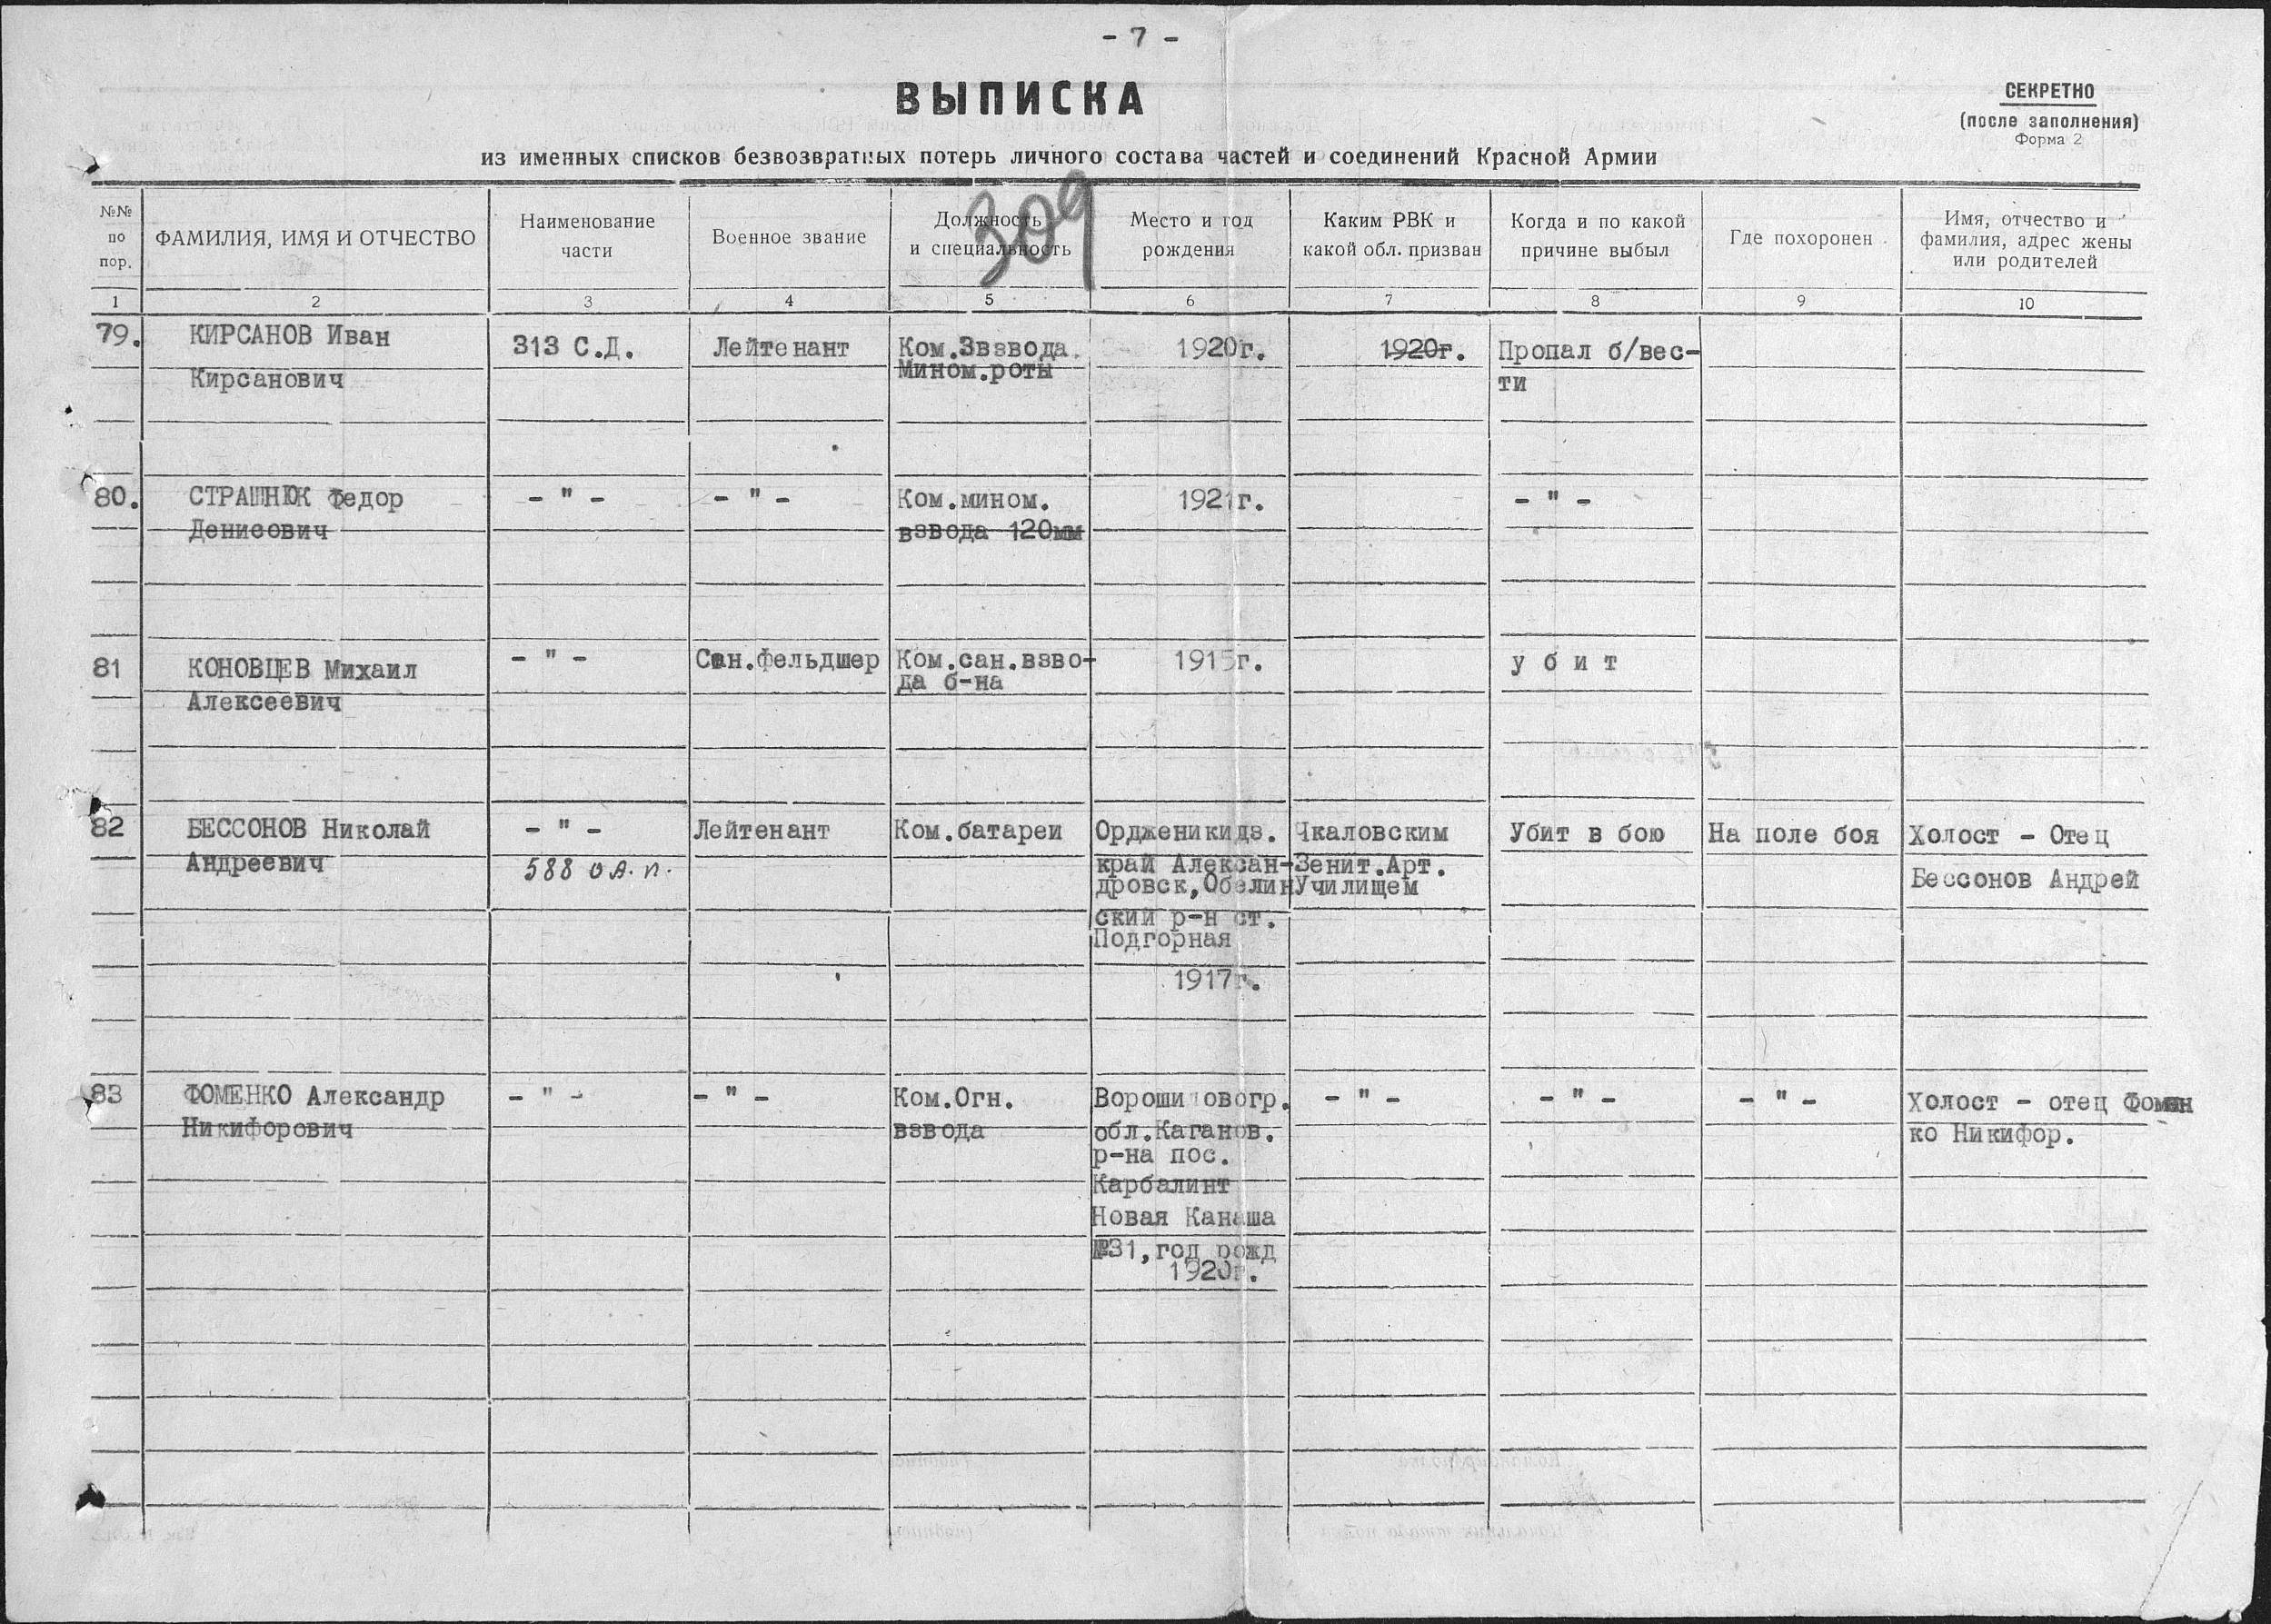 - 7 -
ВЫПИСКА
СЕКРЕТНО
(после заполнения)
Форма 2
из именных списков безвозвратных потерь личного состава частей и соединений Красной Армии
309
№№ по пор.
ФАМИЛИЯ, ИМЯ И ОТЧЕСТВО
Наименование части
Военное звание
Должность и специальность
Место и год рождения
Каким РВК и какой обл. призван
Когда и по какой причине выбыл
Где похоронен
Имя, отчество и фамилия, адрес жены или родителей
1 2 3 4 5 6 7 8 9 10
79. КИРСАНОВ Иван 313 С.Д. Лейтенант Ком.Звзвода. 1920г. 1920г. Пропал б/вес-
Кирсанович Мином.роты ти
80. СТРАШНЮК Федор - " - - " - Ком.мином. 1921г. - " -
Денисович взвода 120мм
81 КОНОВЦЕВ Михаил - " - Сан.фельдшер Ком.сан.взво- 1915г. у б и т
Алексеевич да б-на
82 БЕССОНОВ Николай - " - Лейтенант Ком.батареи Ордженикидз. Чкаловским Убит в бою На поле боя Холост - Отец
Андреевич 588 о А. п. край Алексан- Зенит.Арт. Бессонов Андрей
дровск,Обелин Училищем
ский р-н ст.
Подгорная
1917г.
83 ФОМЕНКО Александр - " - - " - Ком.Огн. Ворошиловогр. - " - - " - - " - Холост - отец Фомен
Никифорович взвода обл.Каганов. ко Никифор.
р-на пос.
Карбалинт
Новая Канаша
№31,год рожд
1920г.